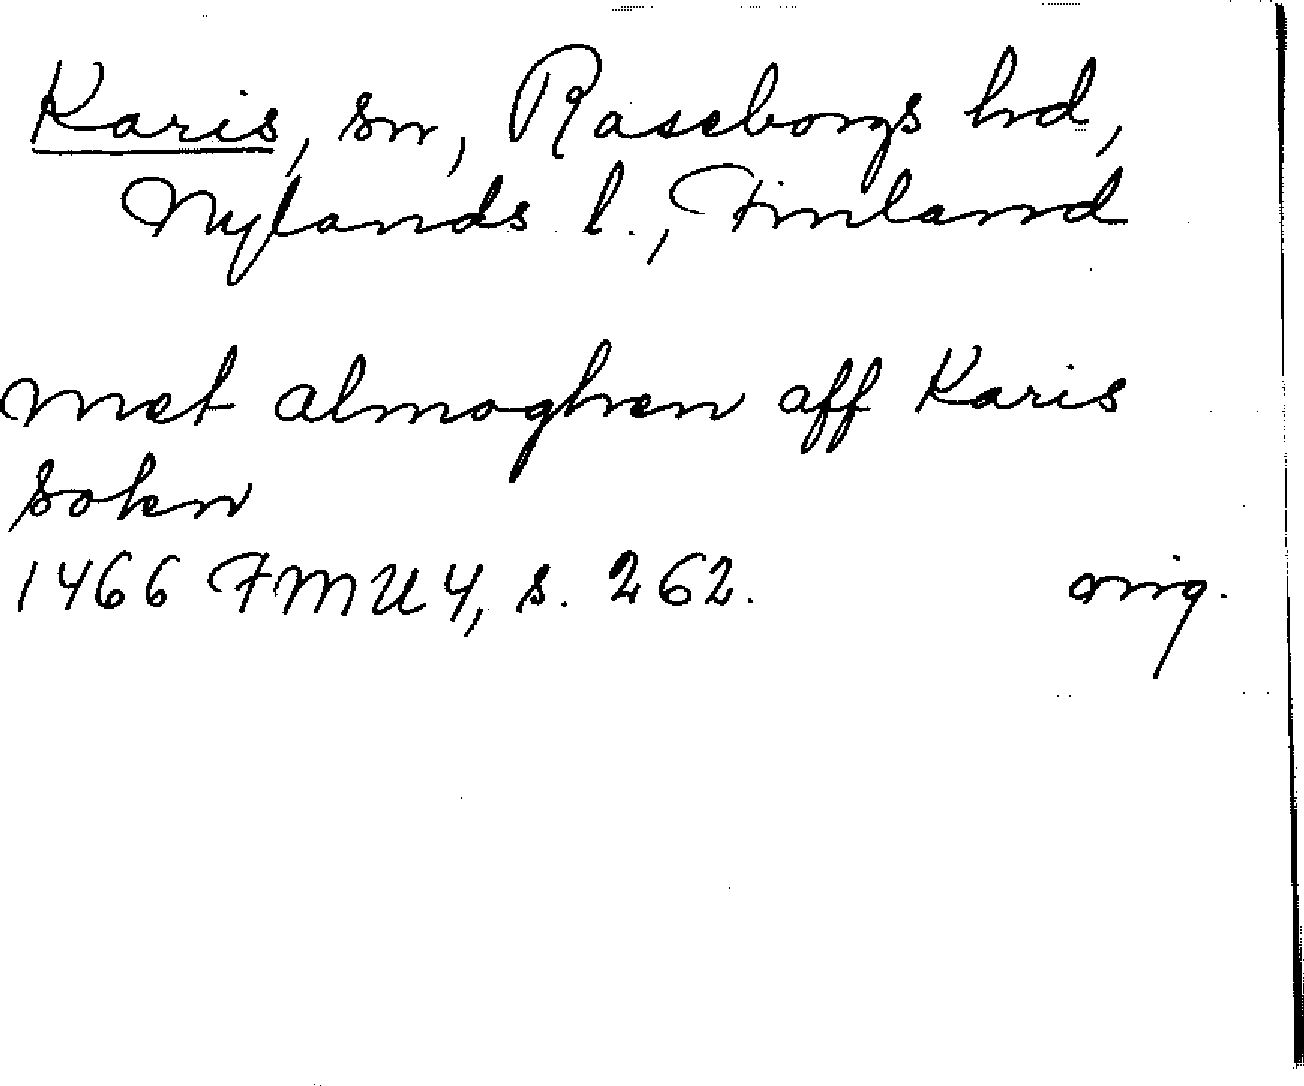 Karis, sn, Raseborgs hd,
Nylands l., Finland
met almoghen aff Karis
sokn
1466 FMU 4, s. 262. orig.